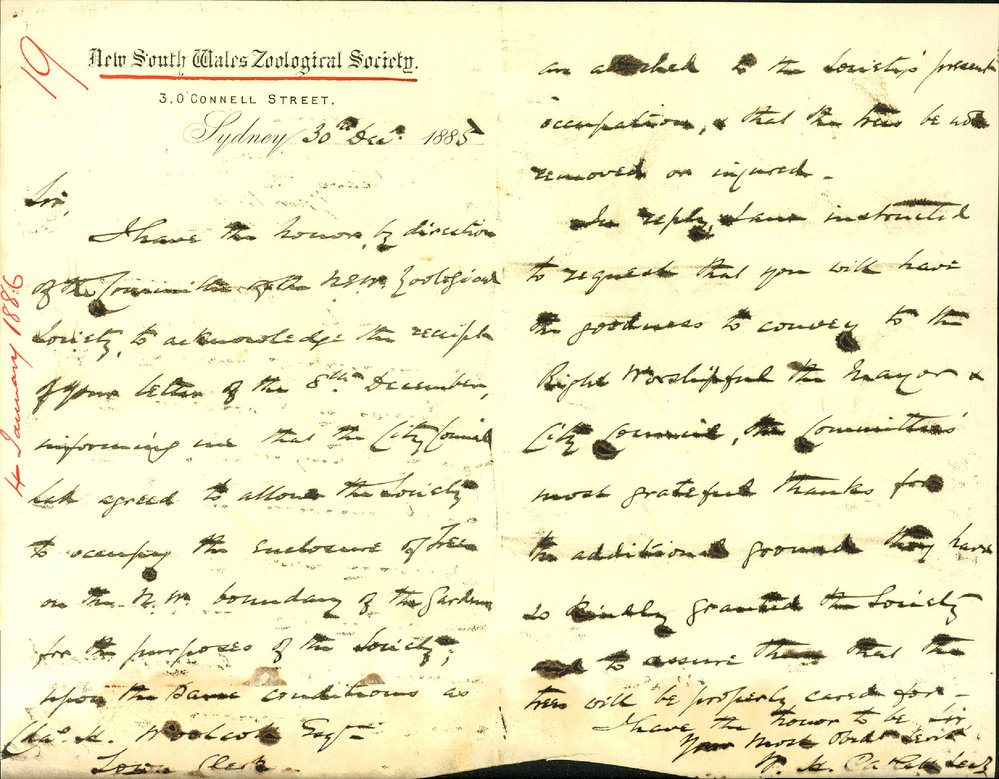 19
New South Wales Zoological Society.
3, O'Connell Street.
Sydney 30th Decr. 1885
4 January 1886
Sir,
I have the honor, by direction
of the Committee of the N.S.W. Zoological
Society, to acknowledge the receipt
of your letter of the 8th December,
informing me that the City Council
has agreed to allow the Society
to occupy the enclosure of Trees
on the N.W. boundary of the Gardens
for the purposes of the Society;
upon the same conditions as
Chas. H. Woolcott Esqre
Town Clerk
are attached to the Society's present
occupation, & that the trees be not
removed or injured -
In reply, I am instructed
to request that you will have
the goodness to convey to the
Right Worshipful the Mayor &
City Council, the Committee's
most grateful thanks for
the additional ground they have
so kindly granted the Society
and to assure them that the
trees will be properly cared for -
I have the honor to be Sir
Your most Obedt Servt